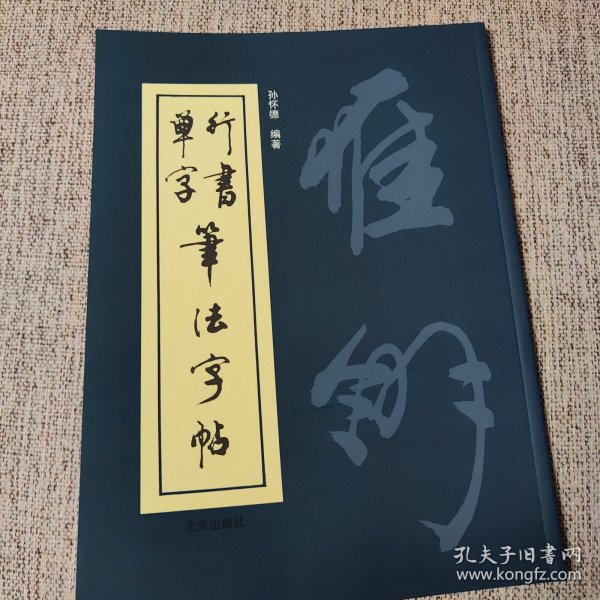 行書
單字
筆法字帖
孙怀德 编著
北京出版社
孔夫子旧书网
www.kongfz.com